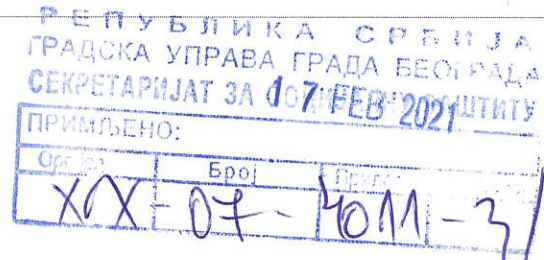 РЕПУБЛИКА СРБИЈА
ГРАДСКА УПРАВА ГРАДА БЕОГРАДА
СЕКРЕТАРИЈАТ ЗА ЗАШТИТУ
17 FEB 2021
ПРИМЉЕНО:
Број
XIX-07-4011-3/